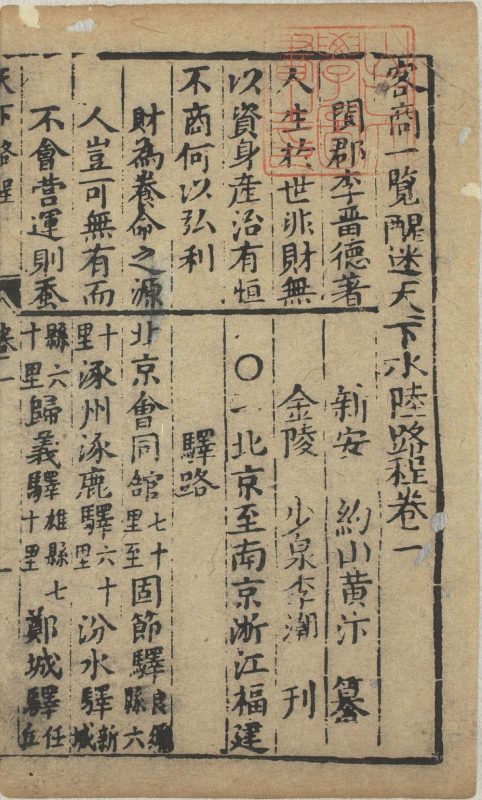 客商一覽醒迷天下水陸路程卷一
閩郡李晉德著
人生於世非財無
以資身產治有恒
不商何以弘利
財為養命之源
人豈可無有而
不會营運則蚕
新安 約山黄汴 纂
金陵 少泉李潮 刋
〇一北京至南京浙江福建
驛路
北京會同舘七十里至固節驛良鄉縣六
十里涿州涿鹿驛六十里汾水驛新城
縣六十里歸義驛雄縣七十里鄚城驛任丘
天下路程
卷一
一